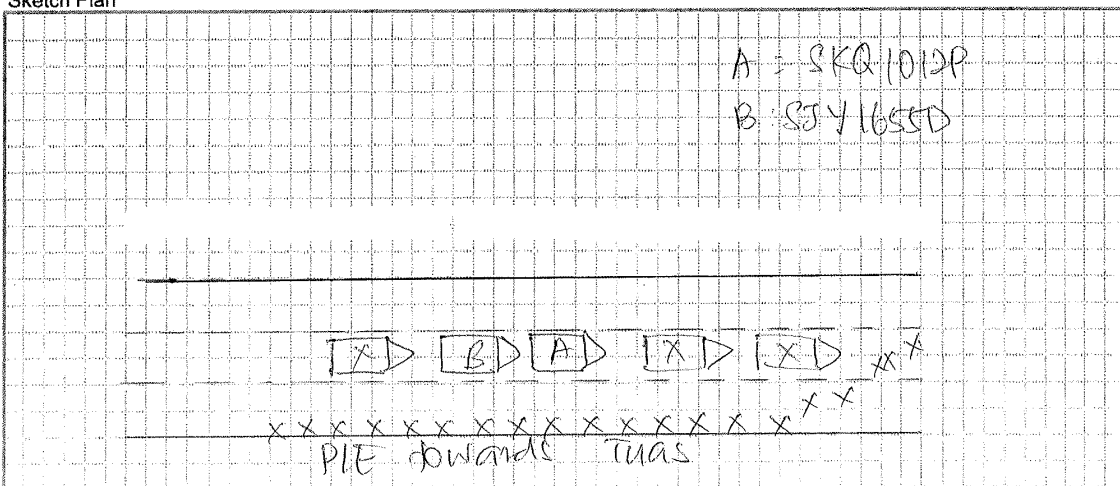 Sketch Plan
A : SKQ1012P
B : SJY1655D
X B A X X X X X
X X
X X X X X X X X X X X X X X X
PIE towards Tuas